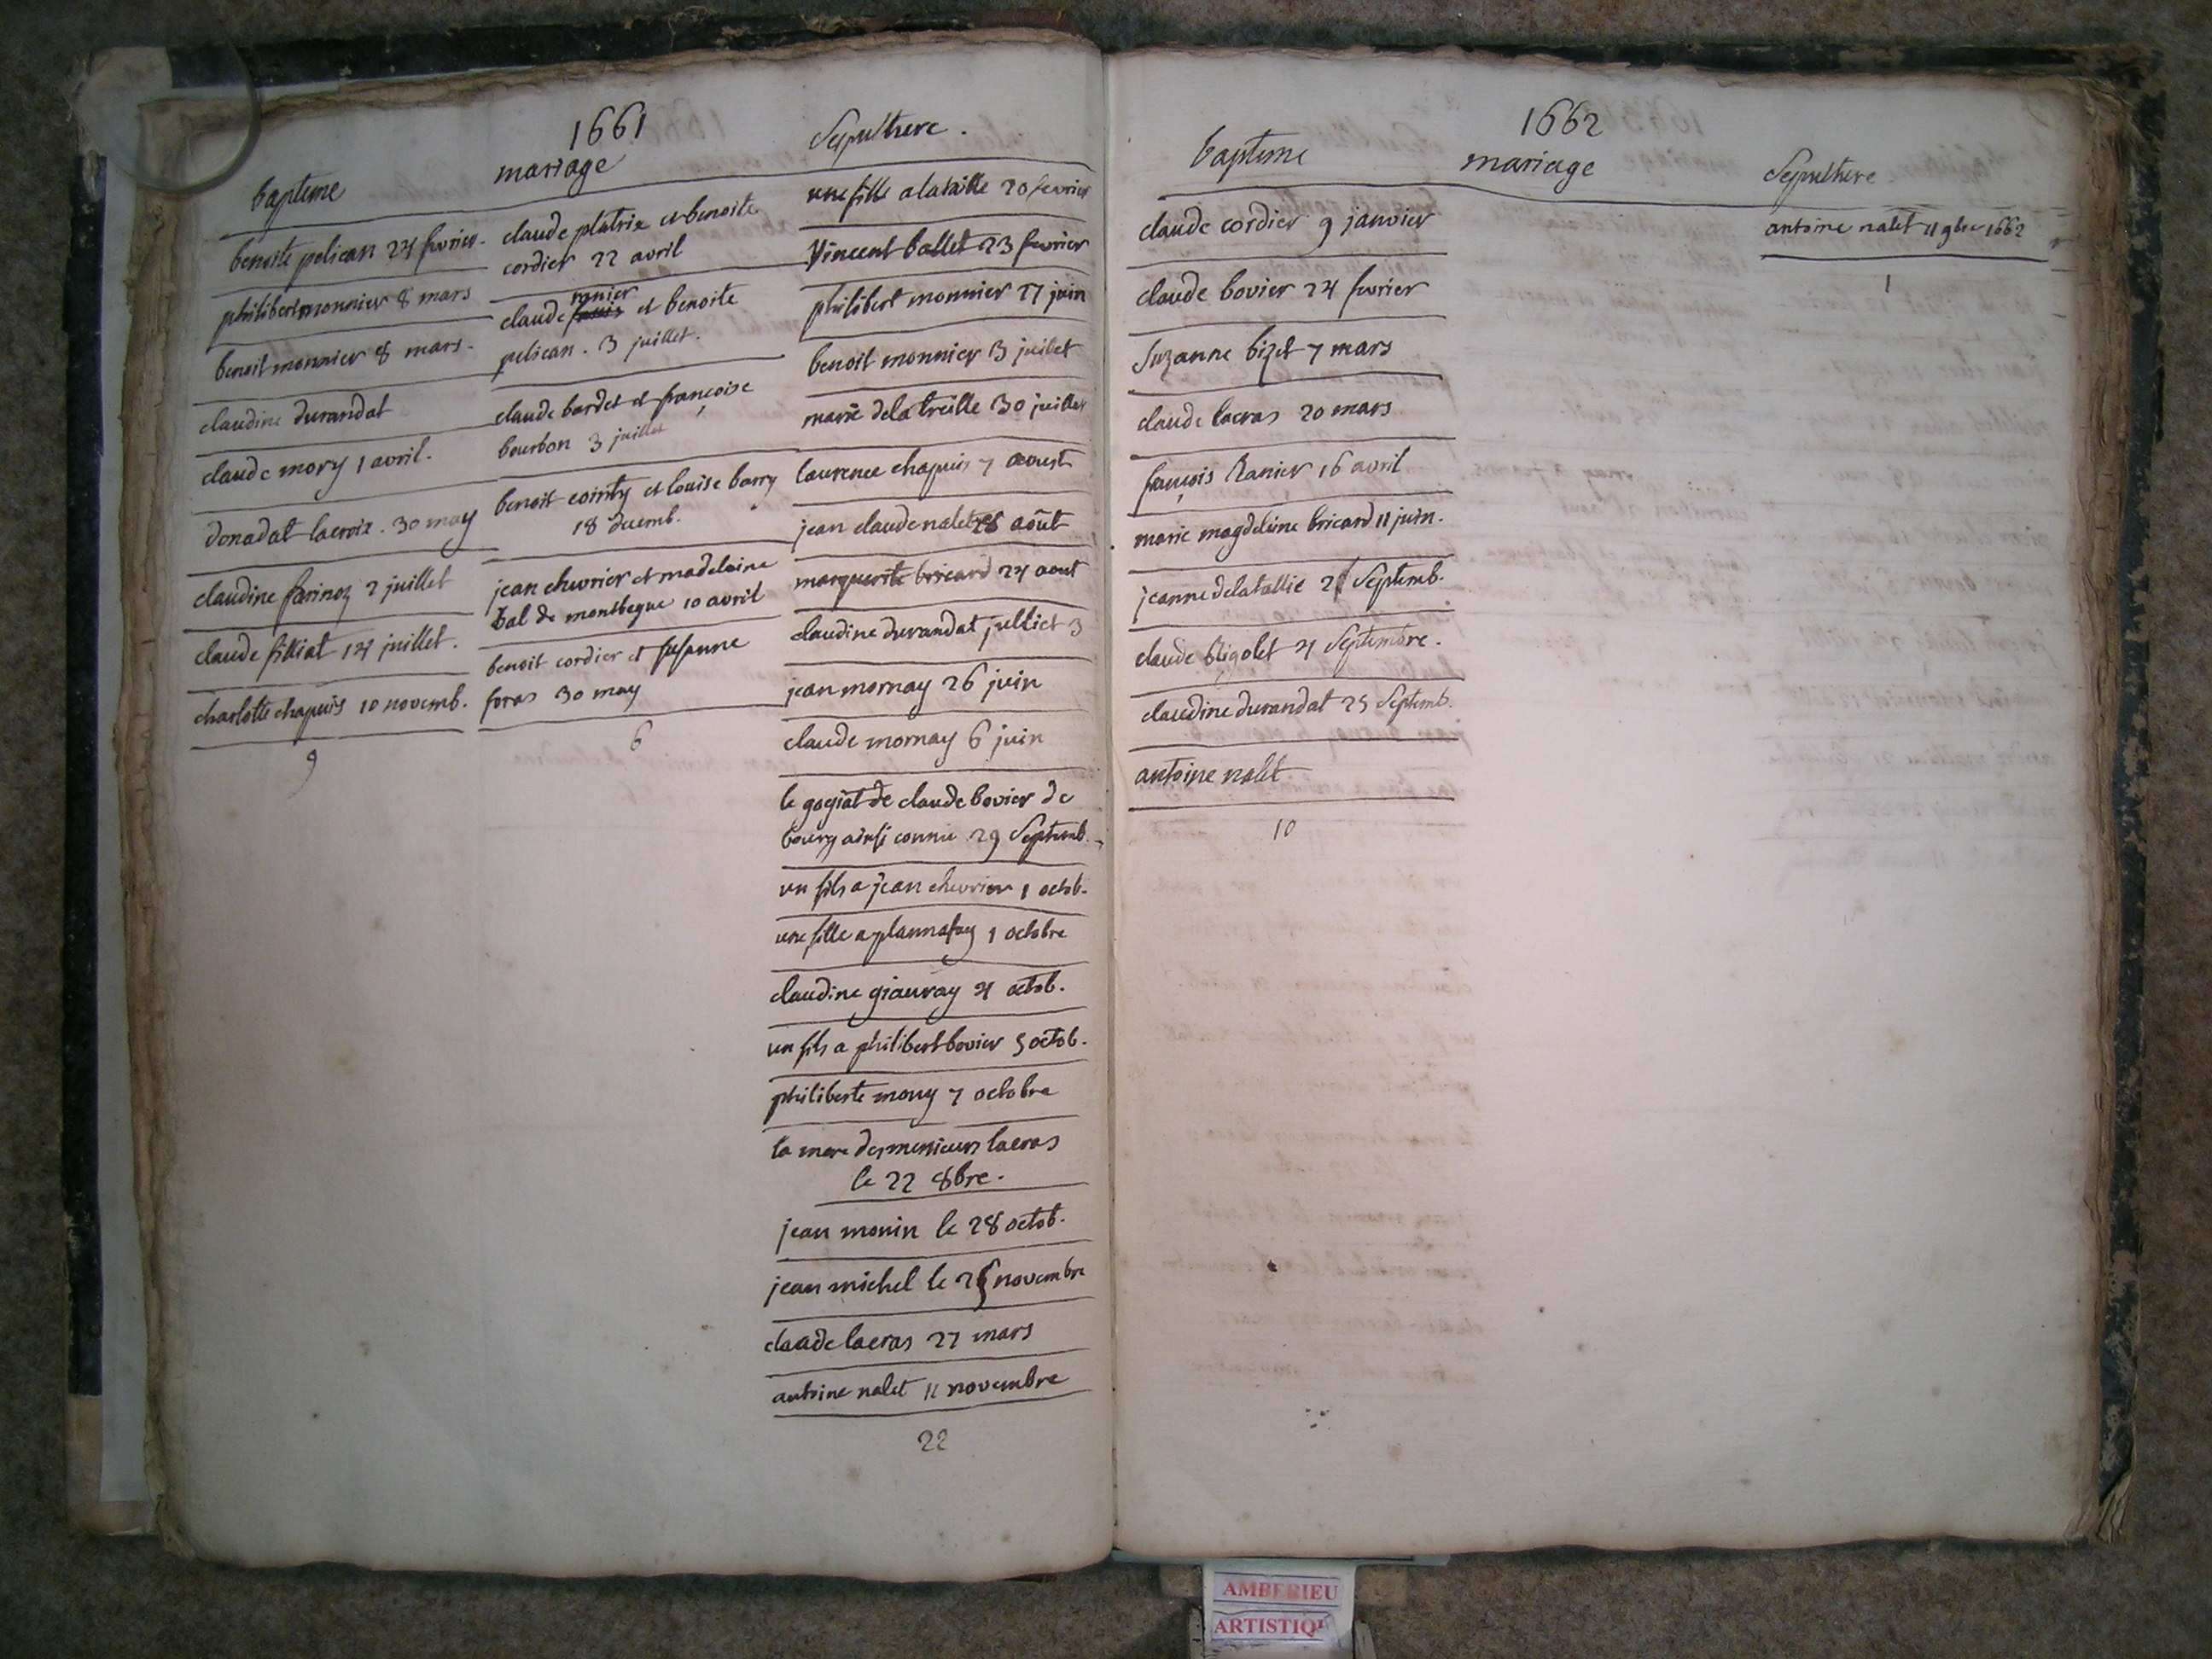 1661
bapteme
benoite pelican 24 fevrier.
philibert monnier 8 mars
benoit monnier 8 mars.
claudine durandat
claude mory 1 avril.
donadat lacroix. 30 may
claudine farinoz 2 juillet
claude filliat 14 juillet.
charlotte chapuis 10 novemb.
9
mariage
claude platrix et benoite
cordier 22 avril
ranier
claude et benoite
pelican. 3 juillet.
claude bardet et françoise
bourbon 3 juillet
benoit cointy et louise barry
18 decemb.
jean chevrier et madelaine
bal de montbegue 10 avril
benoit cordier et susanne
foras 30 may
6
Sepulthere.
une fille a lataille 20 fevrier
Vincent ballet 23 fevrier
philibert monnier 27 juin
benoit monnier 3 juillet
marie delatreille 30 juillet
laurence chapuis 7 aoust
jean claude nalet 28 août
marguerite bricard 24 aout
claudine durandat juilliet 3
jean mornay 26 juin
claude mornay 6 juin
le gagiat de claude bovier de
bourg ainsi connu 29 Septemb.
un fils a jean chevrier 1 octob.
une fille a plannafay 1 octobre
claudine giauray 4 octob.
un fils a philibert bovier 5 octob.
philiberte mony 7 octobre
la mere des messieurs lacras
le 22 8bre.
jean monin le 28 octob.
jean michel le 25 novembre
claude lacras 27 mars
antoine nalet 11 novembre
22
1662
bapteme
claude cordier 9 janvier
claude bovier 24 fevrier
Suzanne bizet 7 mars
claude lacras 20 mars
françois Ranier 16 avril
marie magdeleine bricard 11 juin.
jeanne delatallie 2 Septemb.
claude bligolet 4 Septembre.
claudine durandat 25 Septemb.
antoine nalet
10
mariage
Sepulthere
antoine nalet 11 9bre 1662
1
AMBERIEU
ARTISTIQ